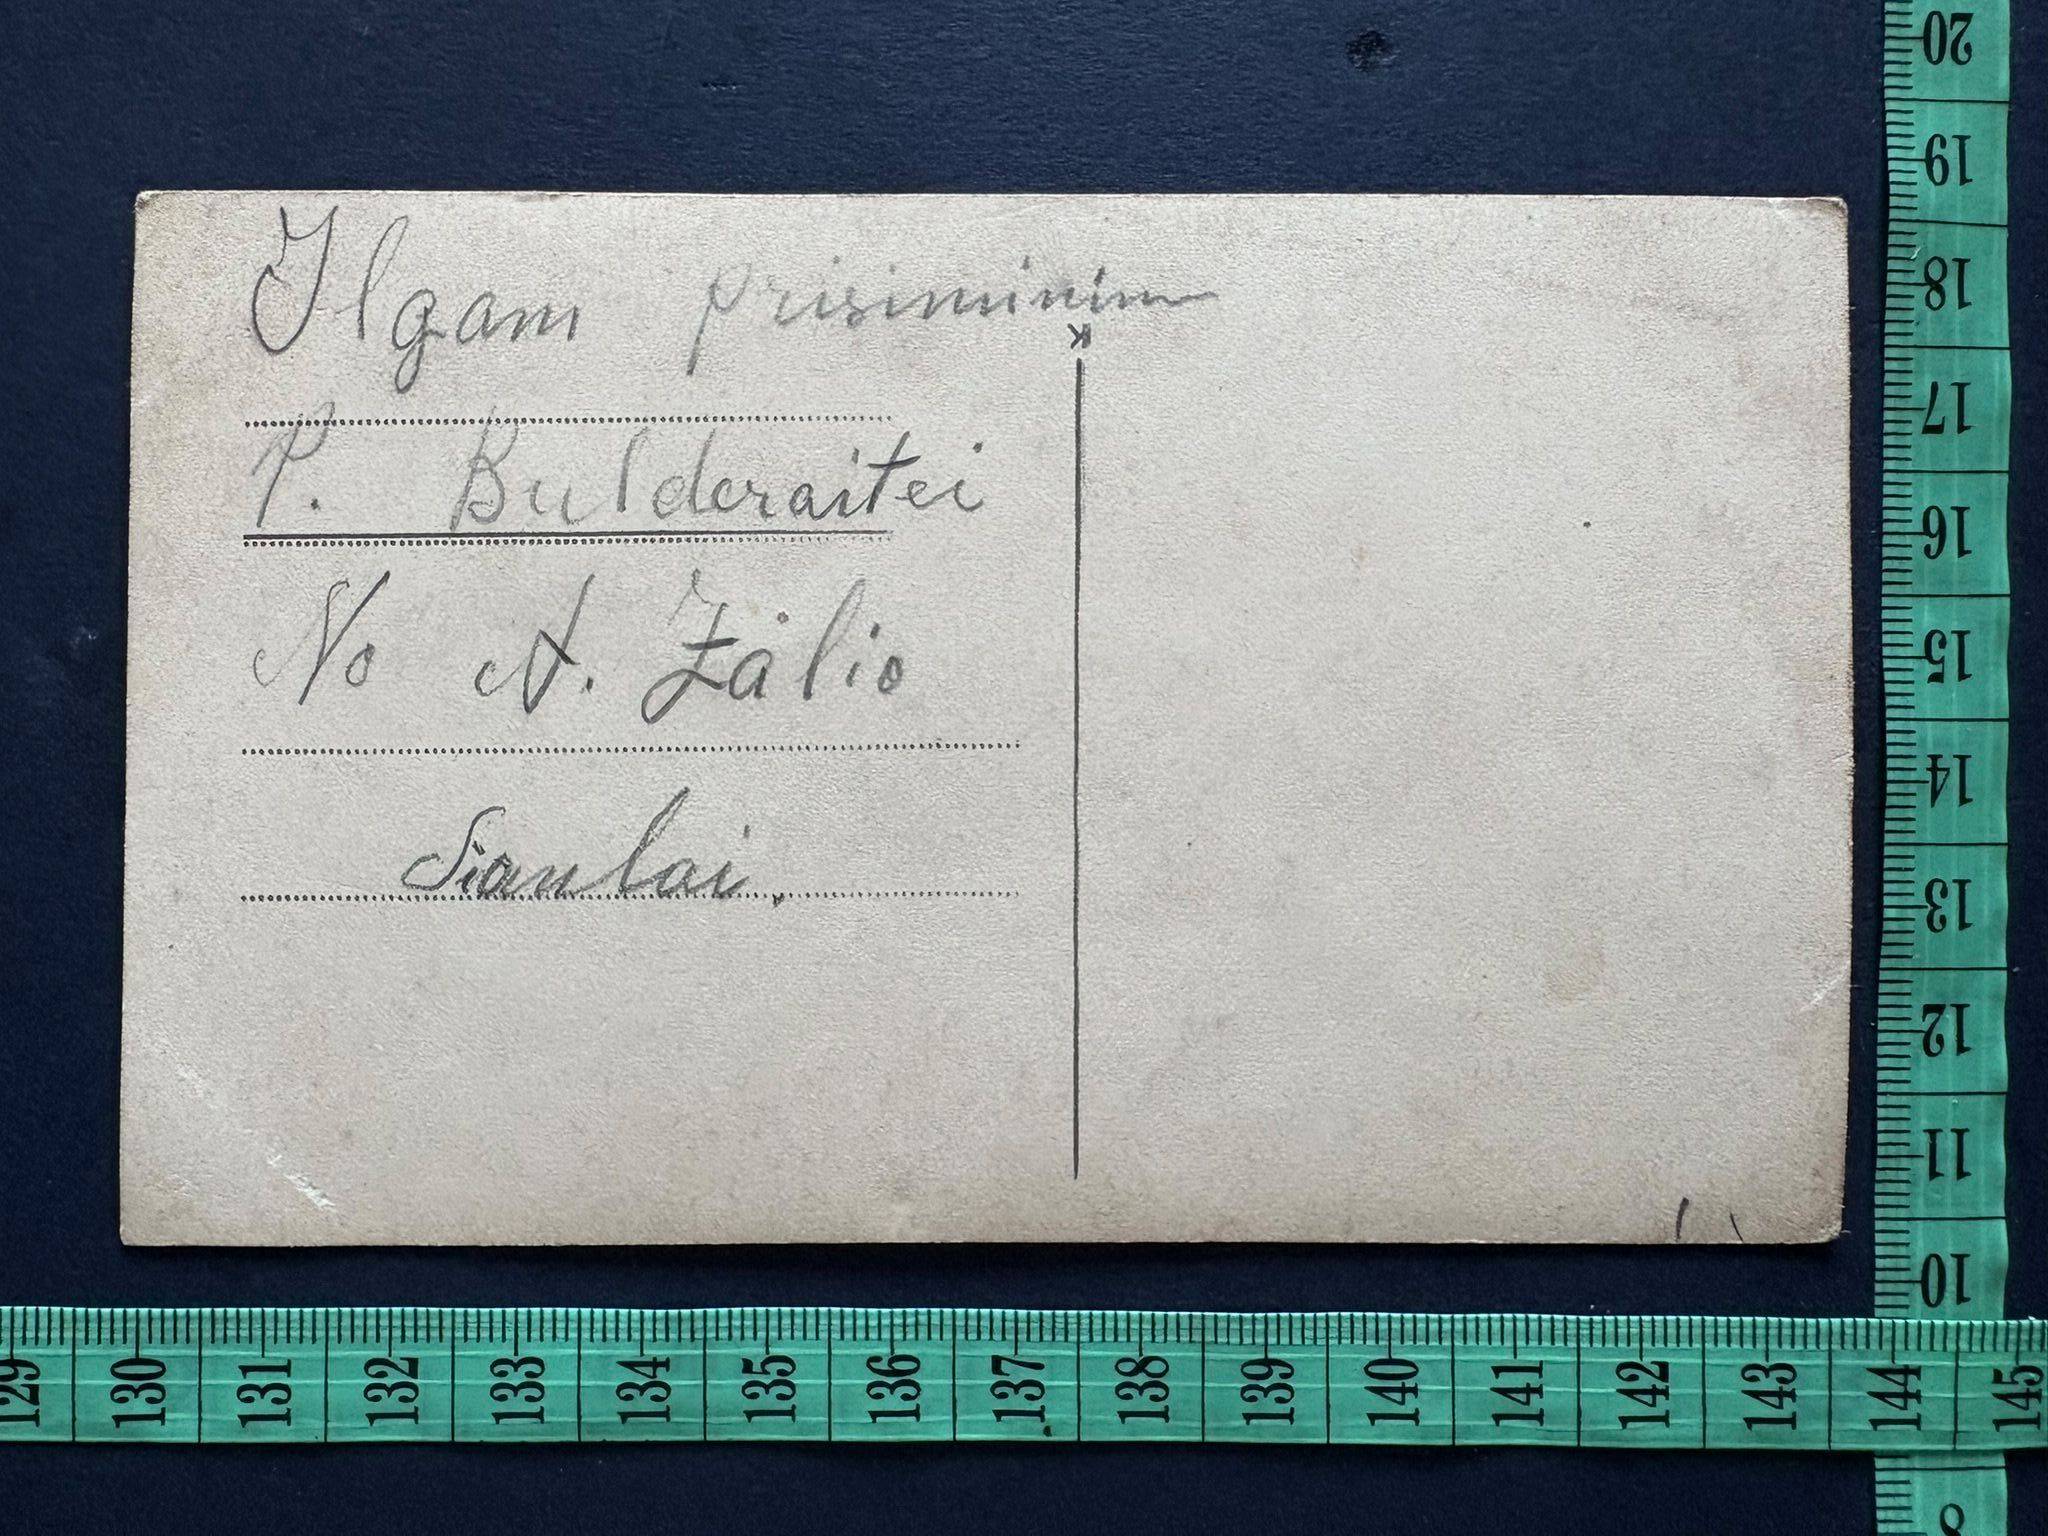 Ilgam prisiminimu
K
P. Bulderaitei
No A. Žalio
Siaulai.
20
19
18
17
16
15
14
13
12
11
10
8
129 130 131 132 133 134 135 136 137 138 139 140 141 142 143 144 145